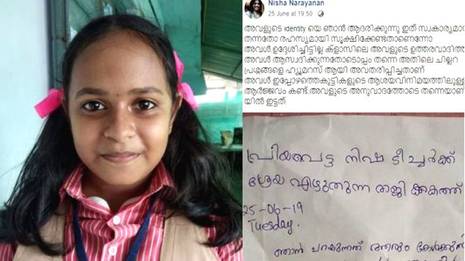 Nisha Narayanan
25 June at 19:50
അവളുടെ identity യെ ഞാൻ ആദരിക്കുന്നു ഇത് സ്വകാര്യമാ
തന്നതോ രഹസ്യമായി സൂക്ഷിക്കേണ്ടതാണെന്നോ
അവൾ ഉദ്ദേശിച്ചിട്ടില്ല ക്ളാസിലെ അവളുടെ ഉത്തരവാദിത്ത
അവൾ ആസ്വദിക്കുന്നതോടൊപ്പം തന്നെ അതിലെ ചില്ലറ
പ്രശ്നങ്ങളെ ഹ്യൂമറസ് ആയി അവതരിപ്പിച്ചതാണ്
അവൾ ഇപ്പോഴത്തെകുട്ടികളുടെ ആശയവിനിമയത്തിലുള്ള
ആർജ്ജവം കണ്ട്.അവളുടെ അനുവാദത്തോടെ തന്നെയാണ്
യിൽ ഇട്ടത്
പ്രിയപ്പെട്ട നിഷ ടീച്ചർക്ക്
ശ്രേയ എഴുതുന്ന രാജി ക്കത്ത്
25-06-19
Tuesday.
ഞാൻ പറയുന്നത്